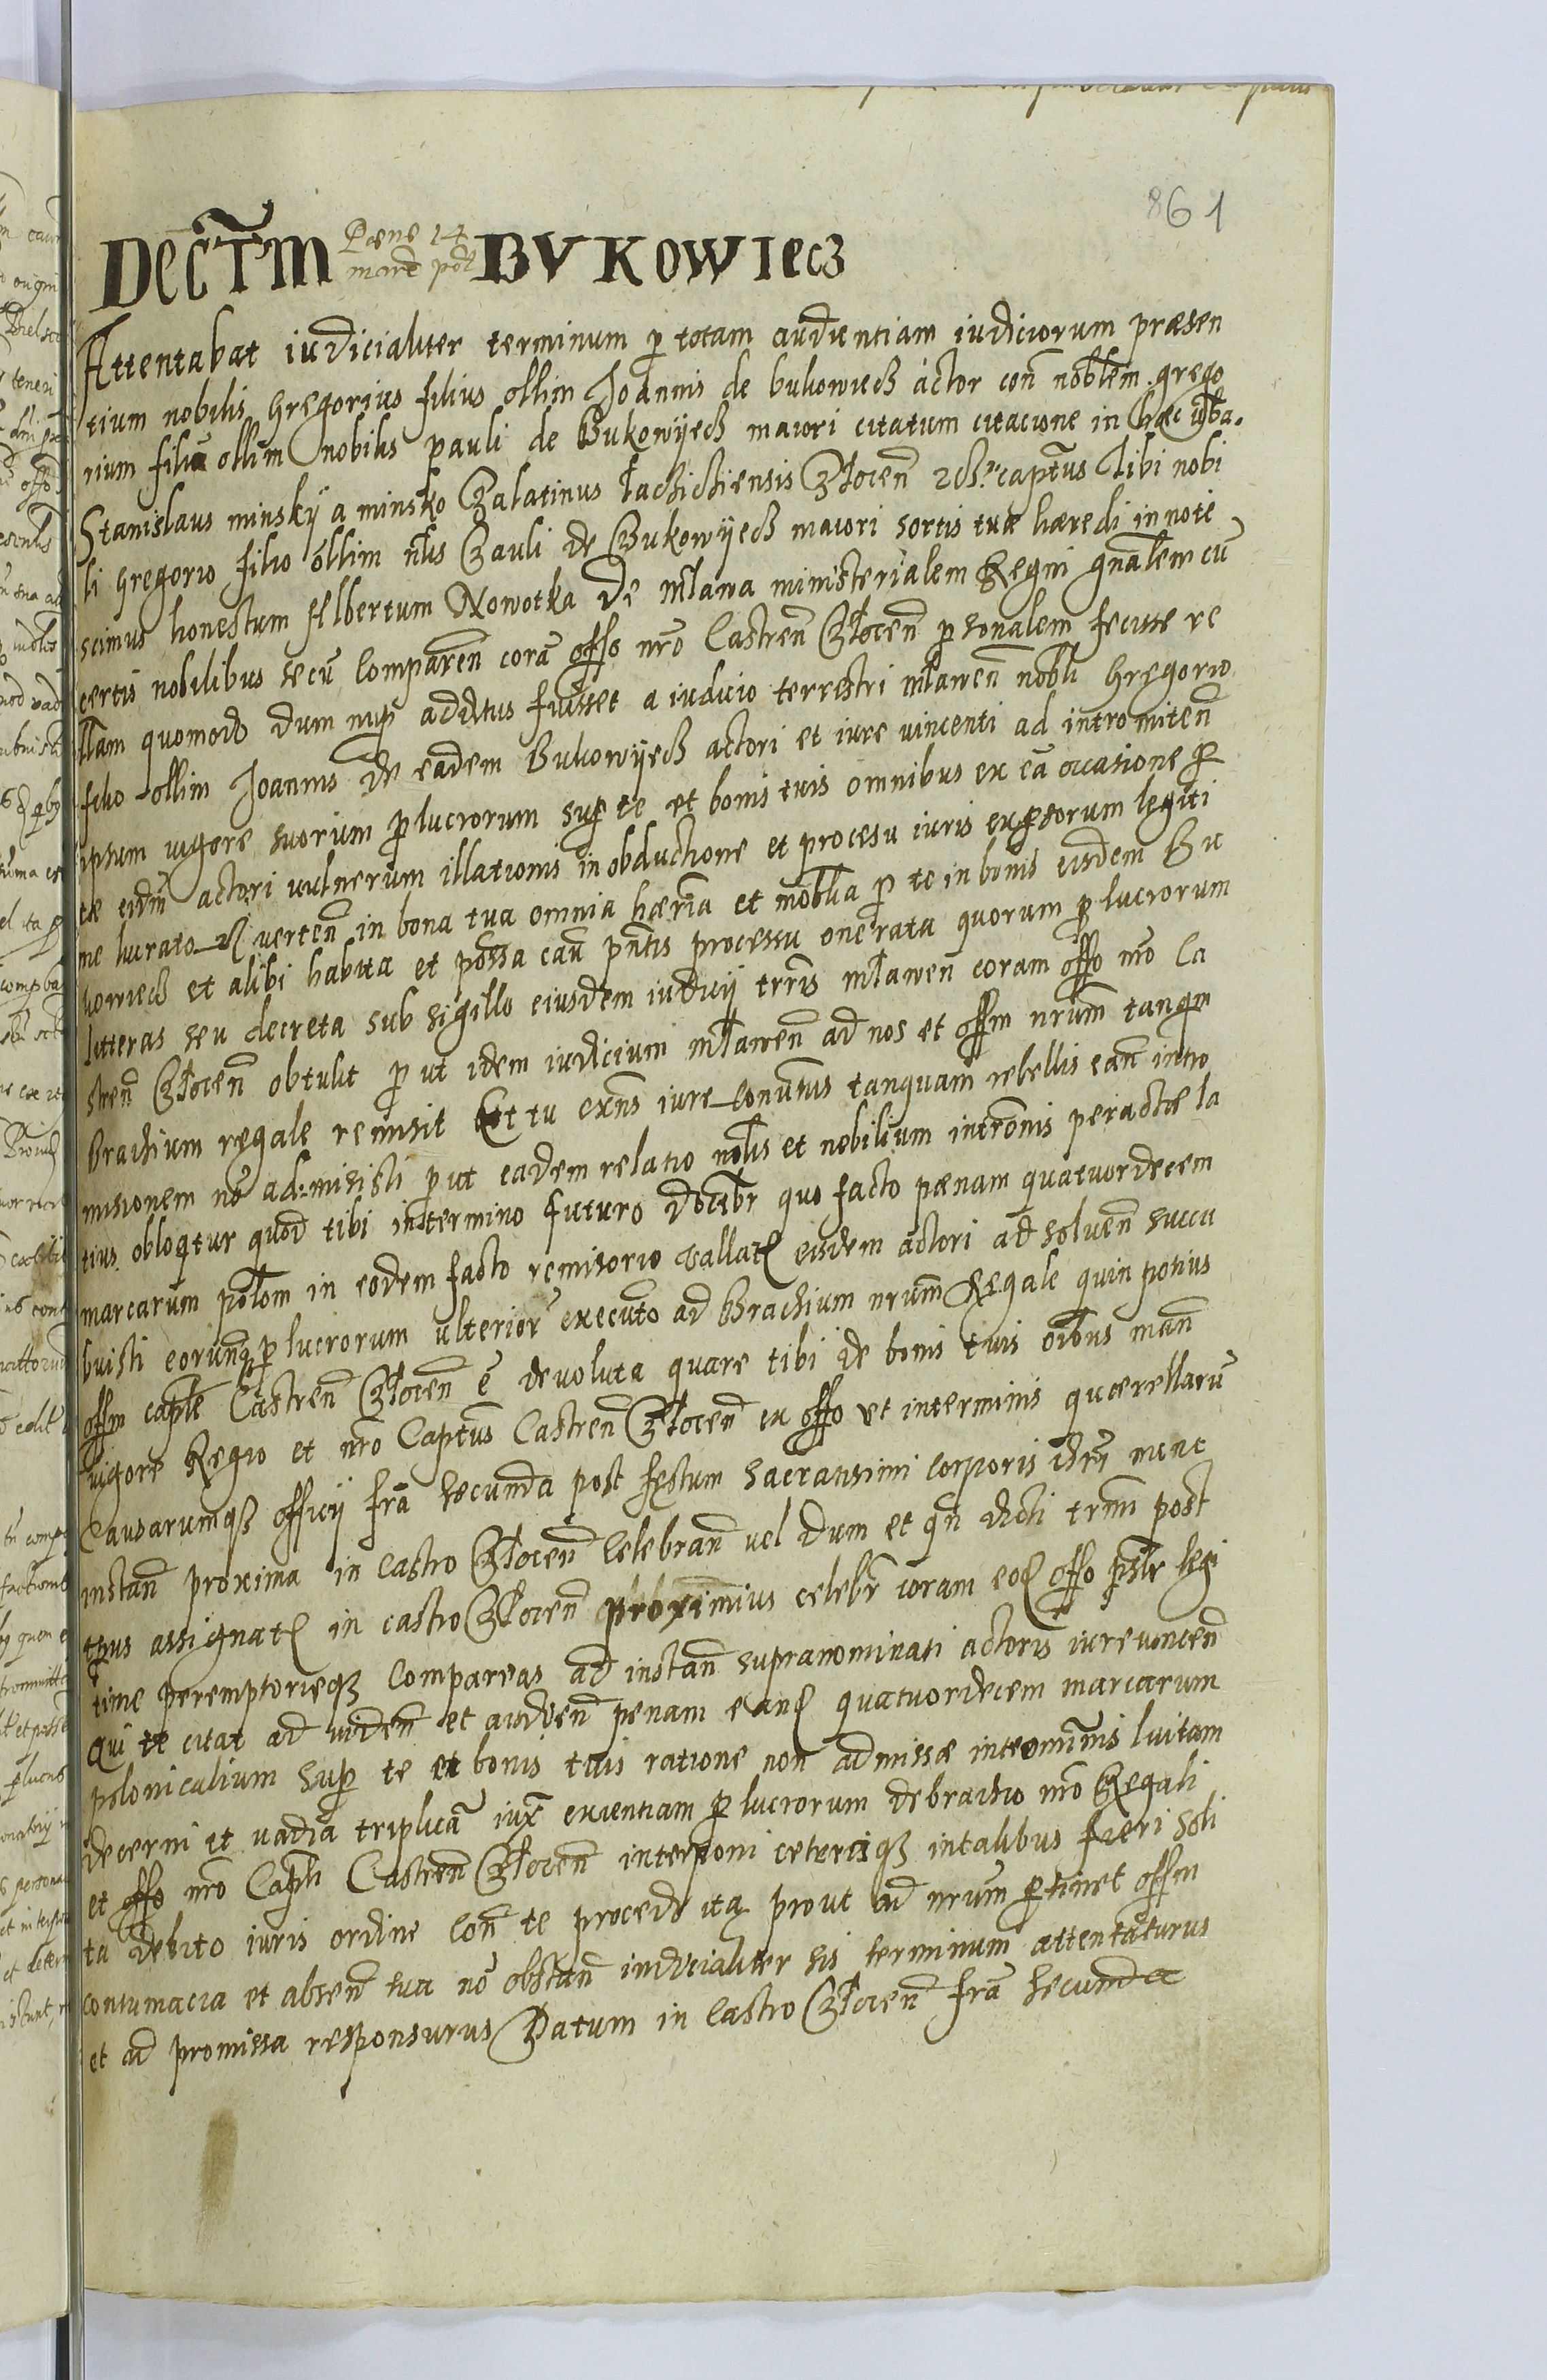 861
Decr̃tm Pæne 14 marc̃ pol BVKOWIecz
Attentabat iudicialiter terminum p totam audientiam iudiciorum præsen
tium nobilis Gregorius filius ollim Joannis de bukowiecz actor con̄ noblem grego
rium filiū ollim nobilis pauli de Bukowÿecz maiori citatum citacione in hæc ùba.
Stanislaus minskÿ a minsko Palatinus Łęczicziensis Człocen̄ captus Tibi nobi
li Gregorio filio ollim nlis Pauli de Bukowÿecz maiori sortis tuæ hæredi in note
scimus honestum Albertum Nowotka de Mława ministerialem Regni gnalem cū
certis nobilibus secū Comparen̄ corā offo nro Castren̄ Człocen̄ psonalem fecisse re
llam quomodo dum nup additus fuisset a iudicio terrestri mławen̄ nobli Gregorio
filio ollim Joannis de eadem Bukowÿecz actori et iure vincenti ad intromiten̄
ipsum vigore suorum plucrorum sup te et bonis tuis omnibus ex eā occasione p
te eidm̄ actori vulnerum illationis in obductione et procesu iuris expsorum legiti
me lucrato verten̄ in bona tua omnia hæria et moblia p te in bonis eisdem Bu
kowiecz et alibi habita et possa cau pntis processu onerata quorum plucrorum
litteras seu decreta sub sigillo eiusdem iudicij trris mławen̄ coram offo nro Ca
stren̄ Człocen̄ obtulit put idem iudicium mławen̄ ad nos et offm nrum tanqm
Brachium regale remisit Et tu exns iure conuntus tanquam rebellis ean intro
misionem nō ad-misisti put eadem relatio nolis et nobilium intromis peractæ la
tius obloqtur quod tibi in termino futuro docebr quo facto pænam quatuordecem
marcarum polom in eodem facto remisorio vallat eisdem actori ad soluen̄ succu
buisti eorunqz plucrorum ulterior executo ad Brachium nrum Regale quin potius
offm caple Castren̄ Człocen̄ ē devoluta quare tibi de bonis tuis oibus man̄
vigore Regio et nro Captus Castren̄ Człocen̄ ex offo et interminis quærellarū
Causarumqz officij frā secunda post festum sacratisimi corporis chri nunc
instan̄ proxima in Castro Człocen̄ Celebran̄ vel dum et qn dicti trmi post
tpus assignat in castro Człocen̄ proximius celebr coram eod offo pstr legi
time peremptorieqz Compareas ad instan̄ supranominati actoris iure vincen̄
Qui te citat ad viden̄ et audien̄ penam eand quatuordecem marcarum
polonicalium sup te et bonis tuis ratione non admissæ intromnis luitam
decerni et vadia triplica iux exientiam plucrorum de brachio nro Regali
et offo nro Capli Castren̄ Człocen̄ interponi ceteriqz in talibus fieri soli
ta debito iuris ordine con̄ te procedi ita prout ad nrum ptinet offm
contumacia et absen̄ tua nō obstan̄ iudicialiter sis terminum attentaturus
et ad promissa responsurus Datum in Castro Człocen̄ frā secunda